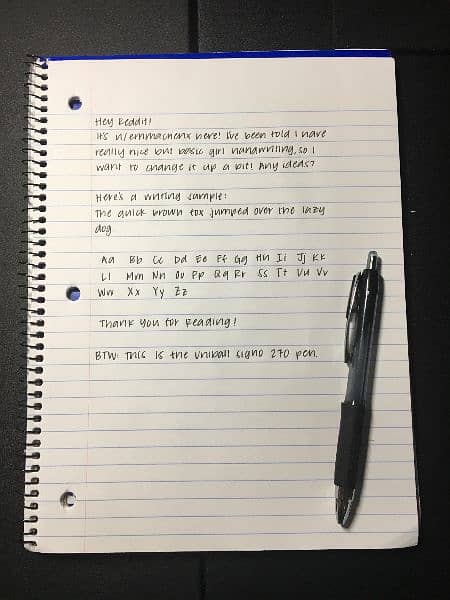 Hey Reddit!
It's u/emmachenx here! I've been told I have
really nice but basic girl handwriting, so I
want to change it up a bit! Any ideas?
Here's a writing sample:
The quick brown fox jumped over the lazy
dog.
Aa Bb Cc Dd Ee Ff Gg Hh Ii Jj Kk
Ll Mm Nn Oo Pp Qq Rr Ss Tt Uu Vv
Ww Xx Yy Zz
Thank you for reading!
BTW: This is the Uniball Signo 270 pen.